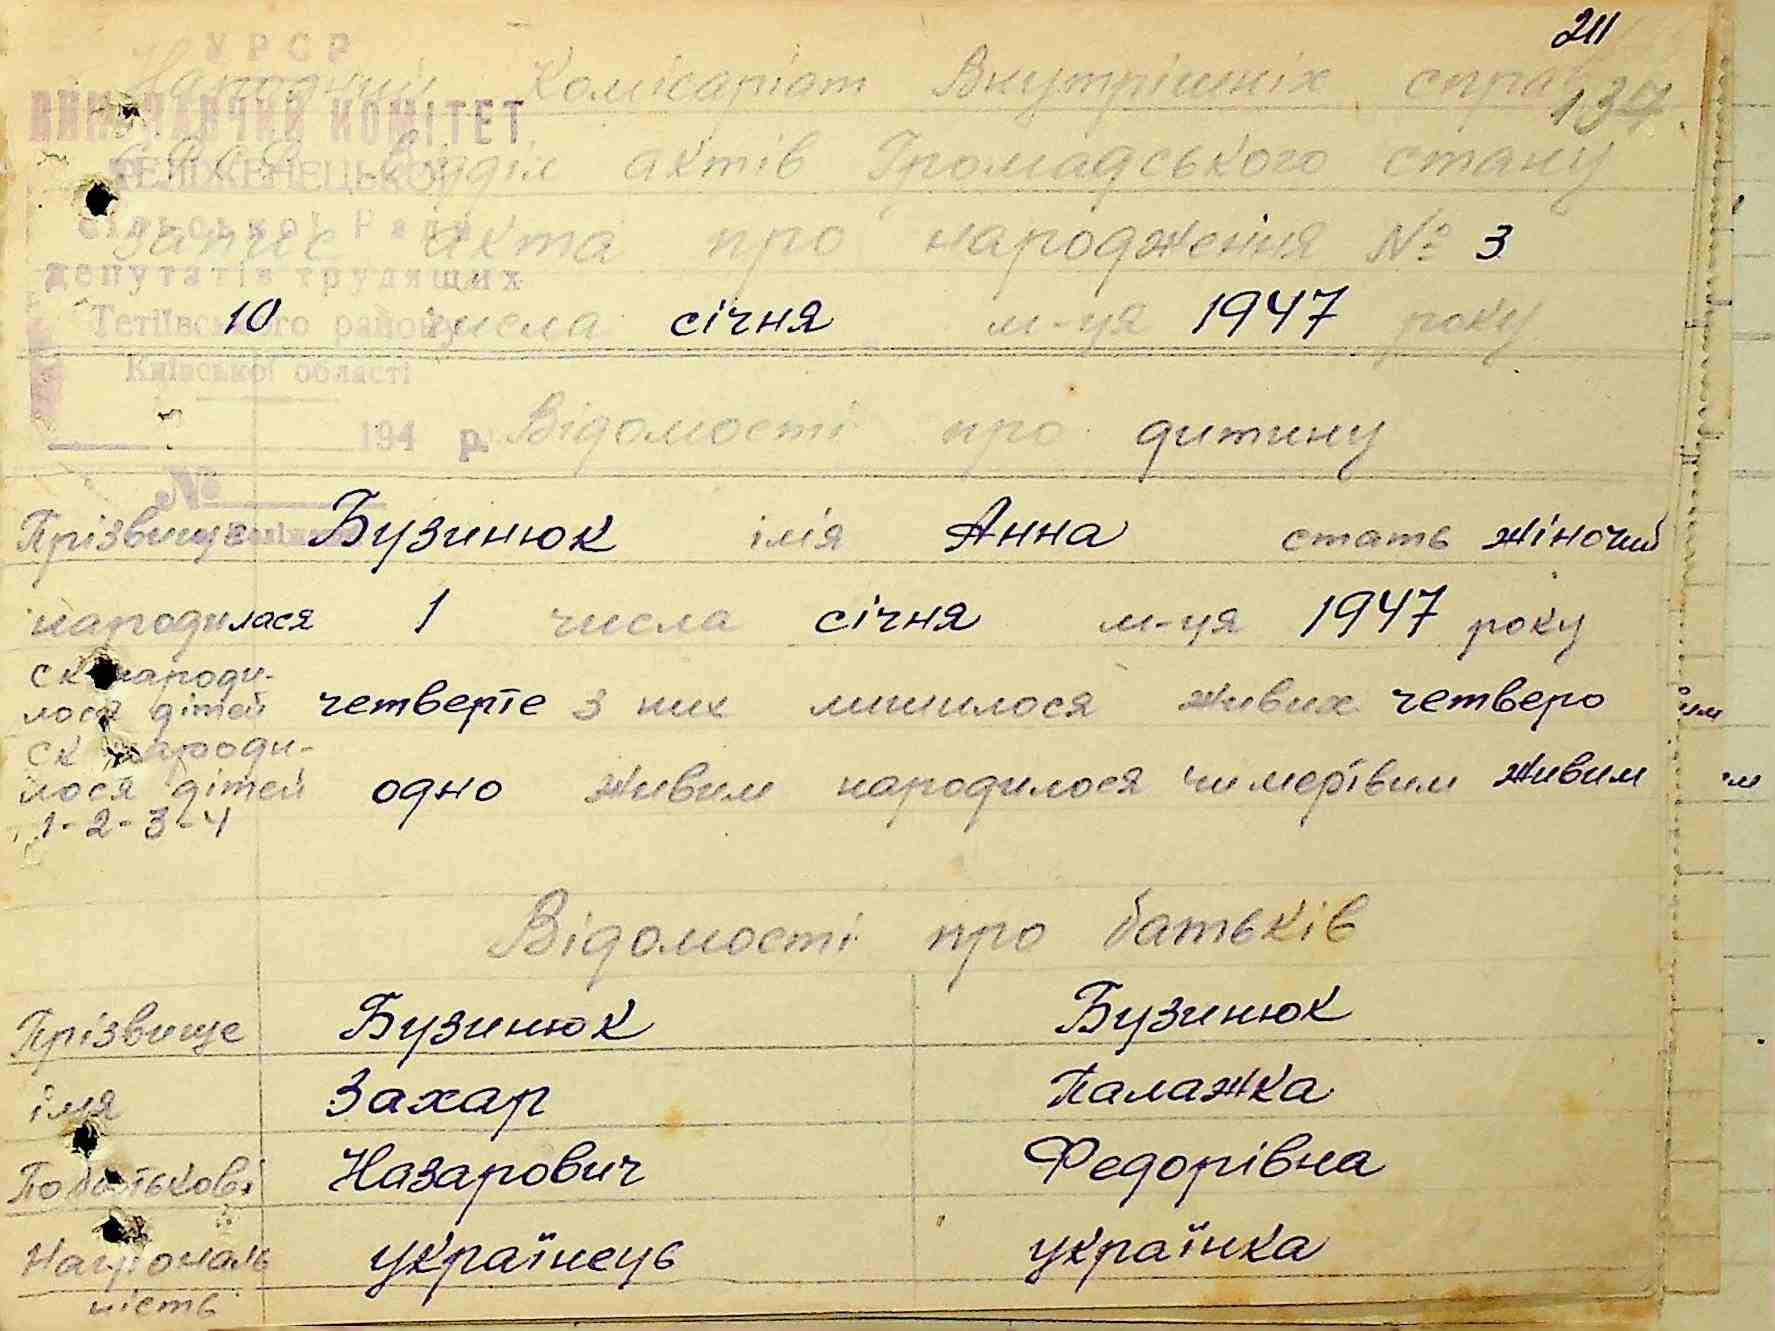 211
134
УРСР
ВИКОНАВЧИЙ КОМІТЕТ
сільської Ради
депутатів трудящих
Тетіївського району
Київської області
194 р.
№
Народній Комісаріат Внутрішніх справ
Відділ актів Громадського стану
запис акта про народження № 3
10 числа січня м-ця 1947 року
Відомості про дитину
Прізвище Бузинюк імя Анна стать жіночий
народилася 1 числа січня м-ця 1947 року
ск народи-
лося дітей четверте з них лишилося живих четверо
ск народи-
лося дітей одно живим народилося чи мертвим живим
1-2-3-4
Відомості про батьків
Прізвище Бузинюк Бузинюк
імя Захар Палажка
Побатькові Назарович Федорівна
Національ українець українка
ність